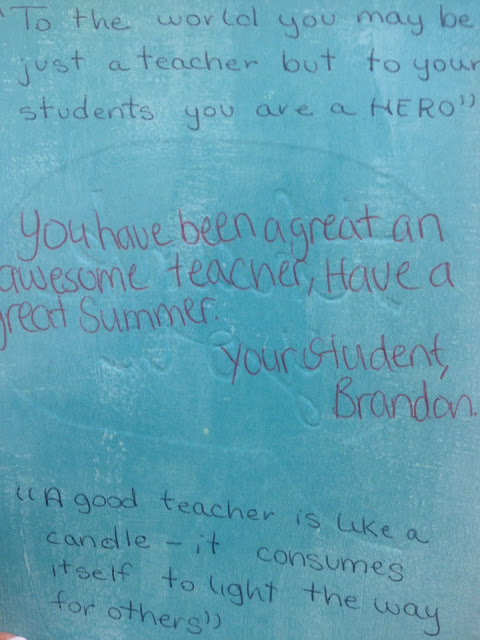 "To the world you may be
just a teacher but to your
students you are a HERO"
You have been a great an
awesome teacher, Have a
great Summer.
your student,
Brandon.
"A good teacher is like a
candle - it consumes
itself to light the way
for others"